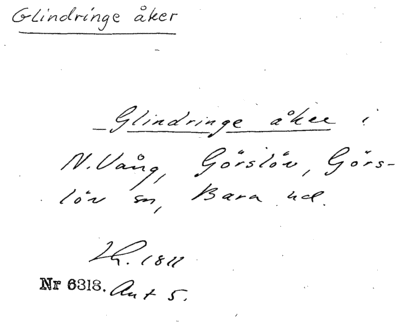 Glindringe åker
Glindringe åker i
N. Vång, Görslöv, Görs-
löv sn, Bara hd.
Lh. 1811
Nr 6318. Akt 5.